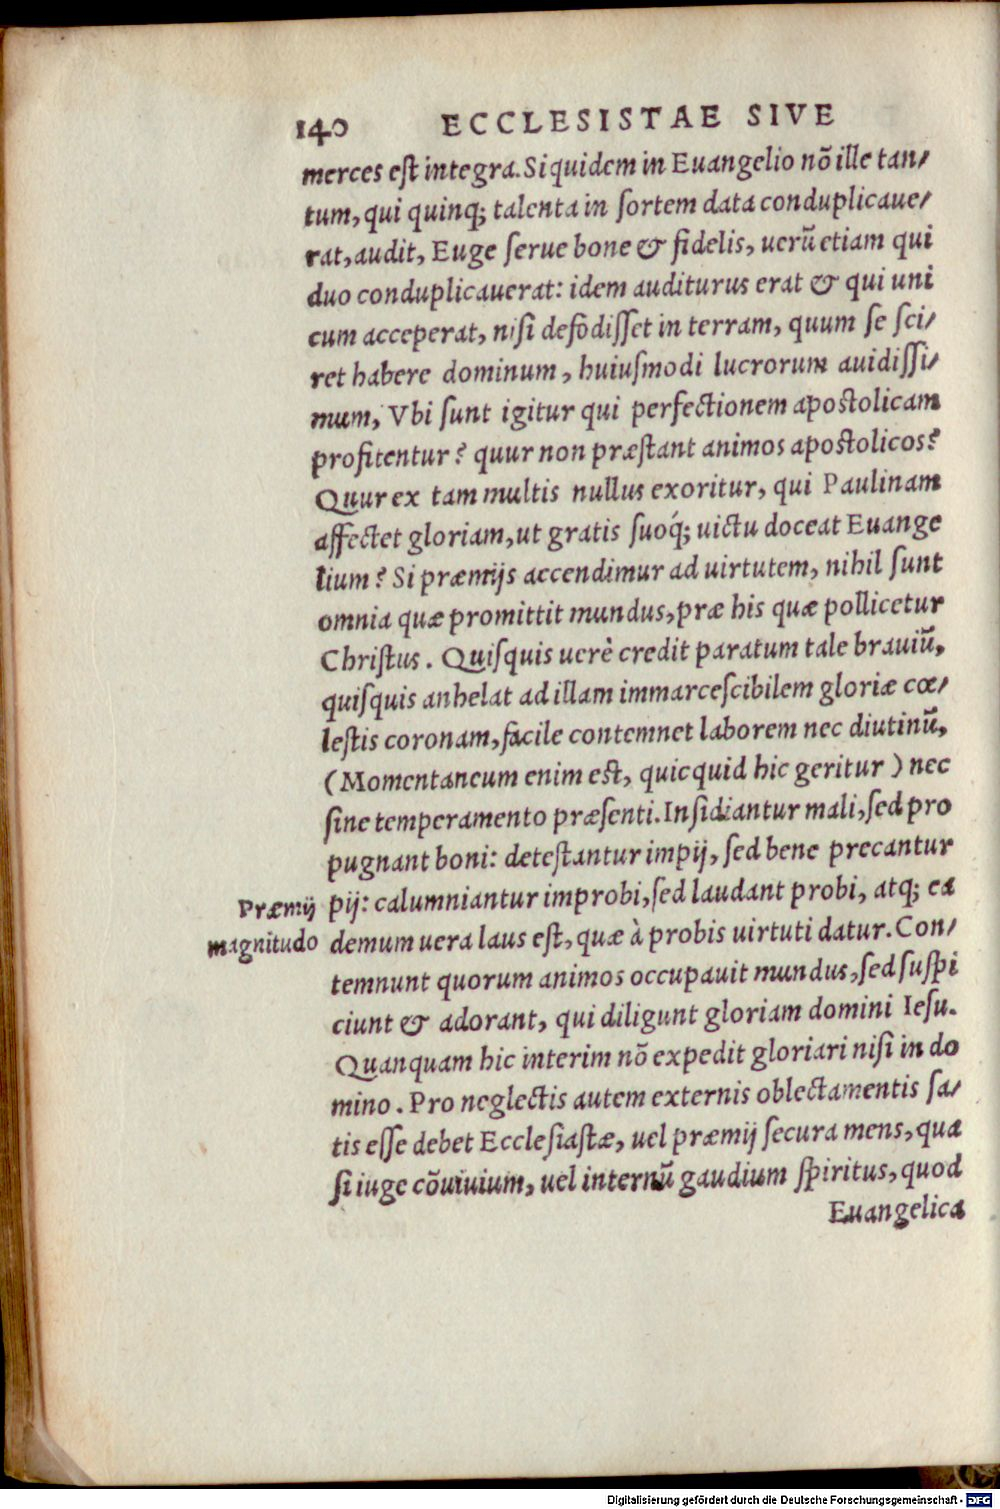 140 ECCLESISTAE SIVE
merces eſt integra. Siquidem in Euangelio nõ ille tan/
tum, qui quinq; talenta in ſortem data conduplicaue/
rat, audit, Euge ſerue bone & fidelis, uerũ etiam qui
duo conduplicauerat: idem auditurus erat & qui uni
cum acceperat, niſi defõdiſſet in terram, quum ſe ſci/
ret habere dominum, huiuſmodi lucrorum auidiſſi/
mum, Vbi ſunt igitur qui perfectionem apostolicam
profitentur? quur non præſtant animos apostolicos?
Quur ex tam multis nullus exoritur, qui Paulinam
affectet gloriam, ut gratis ſuoq́; uictu doceat Euange
lium? Si præmijs accendimur ad uirtutem, nihil ſunt
omnia quæ promittit mundus, præ his quæ pollicetur
Chriſtus. Quiſquis uerè credit paratum tale brauiũ,
quiſquis anhelat ad illam immarceſcibilem gloriæ cœ/
leſtis coronam, facile contemnet laborem nec diutinũ,
(Momentaneum enim est, quicquid hic geritur) nec
ſine temperamento præſenti. Inſidiantur mali, ſed pro
pugnant boni: deteſtantur impij, ſed bene precantur
Præmij pij: calumniantur improbi, ſed laudant probi, atq; ea
magnitudo demum uera laus eſt, quæ à probis uirtuti datur. Con/
temnunt quorum animos occupauit mundus, ſed ſuſpi
ciunt & adorant, qui diligunt gloriam domini Ieſu.
Quanquam hic interim nõ expedit gloriari niſi in do
mino. Pro neglectis autem externis oblectamentis ſa/
tis eſſe debet Eccleſiaſtæ, uel præmij ſecura mens, qua
ſi iuge cõuiuium, uel internũ gaudium ſpiritus, quod
Euangelica
Digitalisierung gefördert durch die Deutsche Forschungsgemeinschaft - DFG